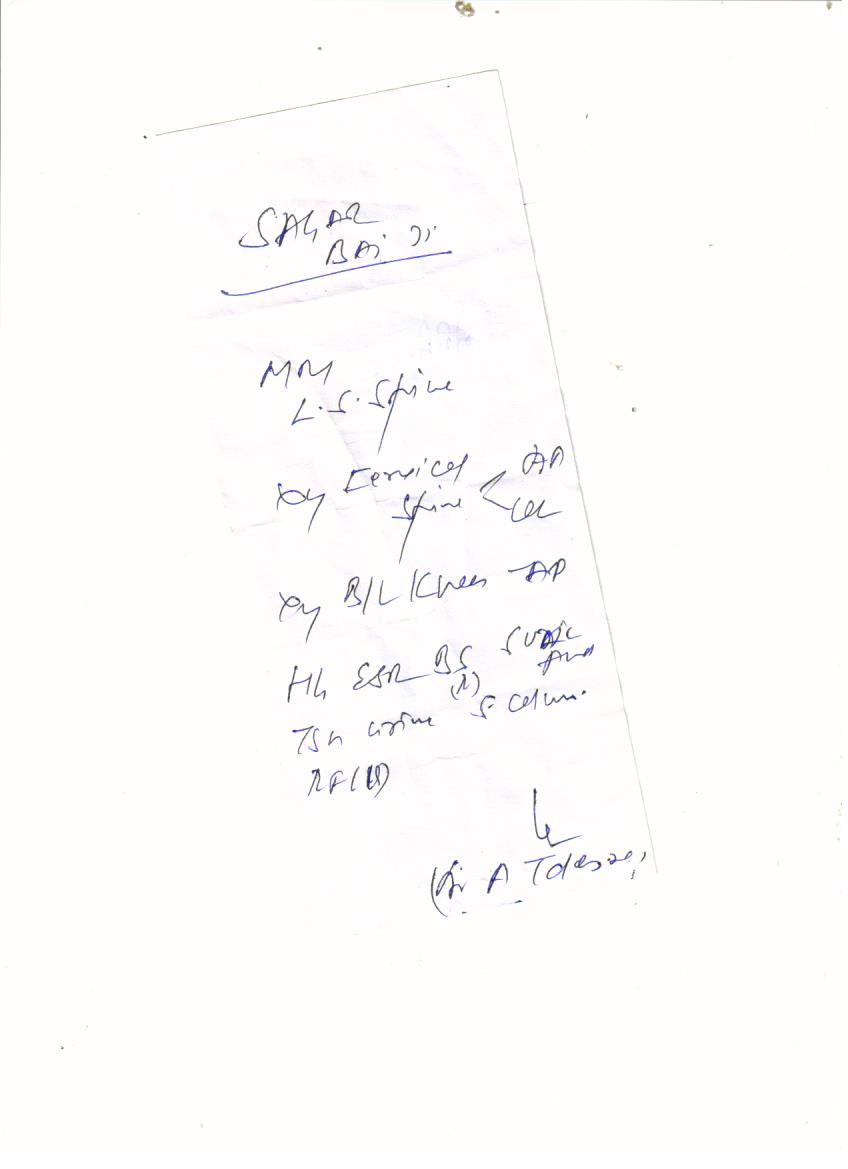 SAGAR
BAi Ji
MRI
L.S. Spine
Xry Cervical AP
Spine Lat
Xry B/L Knees AP
Hb ESR BS (R) S uric Acid
TSH urine S Calcium
RF
(Dr A